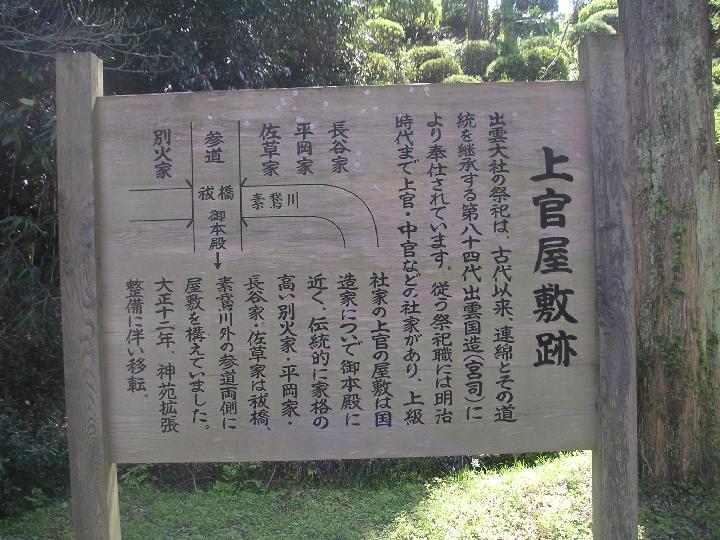 上官屋敷跡
出雲大社の祭祀は、古代以来、連綿とその道
統を継承する第八十四代出雲国造(宮司)に
より奉仕されています。従う祭祀職には明治
時代まで上官・中官などの社家があり、上級
社家の上官の屋敷は国
造家について御本殿に
近く、伝統的に家格の
高い別火家・平岡家・
長谷家・佐草家は祓橋、
素鵞川外の参道両側に
屋敷を構えていました。
大正十二年、神苑拡張
整備に伴い移転。
長谷家
平岡家
佐草家
参道
別火家
素鵞川
祓橋
御本殿